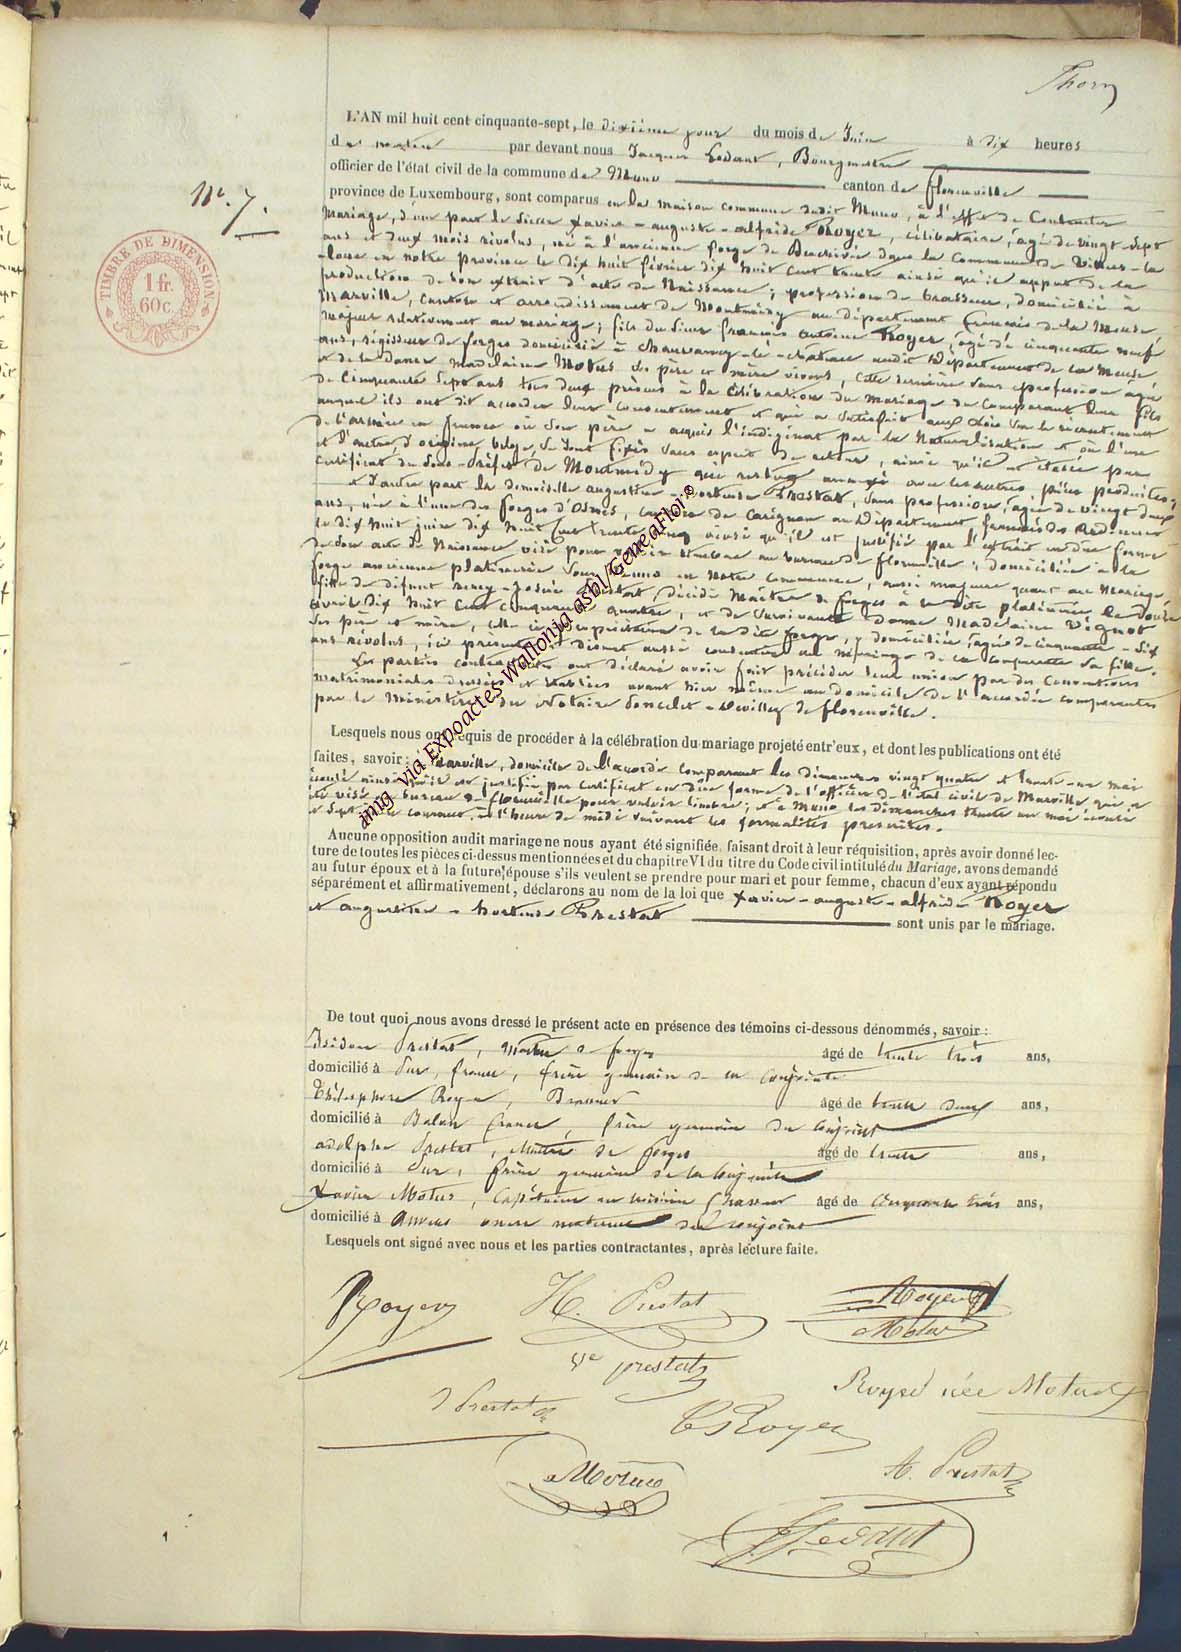 Thorn
L'AN mil huit cent cinquante-sept, le dixième jour du mois de Juin à dix heures
du matin par devant nous Jacques Lodant, Bourgmestre
officier de l'état civil de la commune de Muno canton de florenville
Nº. 7.
province de Luxembourg, sont comparus en la maison commune dudit Muno, à l'effet de Contracter
Mariage, d'une part le sieur Xavier-auguste-alfride Royer, célibataire, âgé de vingt-sept
ans et deux mois révolus, né à l'ancienne forge de dans la Commune de Villers-la
-loue en notre province le dix huit février dix huit cent trente ainsi qu'il appert de la
production de son extrait d'acte de Naissance; profession de brasseur, domicilié à
Marville, canton et arrondissement de Montmédy au département français de la Meuse
majeur relativement au mariage; fils du sieur françois antoine Royer, âgé de cinquante neuf
ans, régisseur de forges domicilié à Chauvancy-le-château audit Département de la Meuse
et de la dame Madelaine Motus ses père et mère vivants, cette dernière sans profession âgée
de Cinquante Sept ans tous deux présents à la célébration du mariage du Comparant leur fils
auquel ils ont dit accorder leur consentement et qui a satisfait aux lois sur le recrutement
de l'armée en france où son père a acquis l'indigénat par la Naturalisation et où l'une
et l'autre, d'origine belge, se sont fixés sans esprit de retour, ainsi qu'il est par
certificat du Sous-Préfet de Montmédy qui restera annexé avec les autres pièces produites,
et d'autre part la demoiselle augustine-hortense Prestat, sans profession, âgée de vingt deux
ans, née à l'une des forges d'Osnes, canton de Carignan au Département français des Ardennes
le Dix huit juin dix huit Cent trente cinq ainsi qu'il est justifié par l'extrait en due forme
de son acte de Naissance visé pour valoir timbre au bureau de florenville; domiciliée à la
forge ancienne platinerie sous Muno en Notre Commune, aussi majeure quant au Mariage
fille de défunt -Josée Prestat, décédé Maître de forges à la dite platinerie le douze
avril dix huit cent cinquante quatre, et de survivante Dame Madelaine Vignot
ses père et mère, elle ici propriétaire de la dite forge, y domiciliée, âgée de cinquante-six
ans révolus, ici présente et disant aussi consentir au mariage de la comparante sa fille.
Les parties contractantes ont déclaré avoir fait précéder leur union par des Conventions
matrimoniales dressées et établies avant hier même au domicile de l'accordée comparante
par le Ministère du Notaire Poncelet-Devilley de florenville.
Lesquels nous ont requis de procéder à la célébration du mariage projeté entr'eux, et dont les publications ont été
faites, savoir: à Marville, domicile de l'accordé comparant les dimanches vingt quatre et trente-un mai
écoulé ainsi qu'il est justifié par certificat en due forme de l'officier de l'état civil de Marville, qui a
été visé au bureau de florenville pour valoir timbre; et à Muno les dimanches trente un mai écoulé
et Sept juin courant, à l'heure de midi suivant les formalités prescrites.
Aucune opposition audit mariage ne nous ayant été signifiée, faisant droit à leur réquisition, après avoir donné lec-
ture de toutes les pièces ci-dessus mentionnées et du chapitre VI du titre du Code civil intitulé du Mariage, avons demandé
au futur époux et à la future épouse s'ils veulent se prendre pour mari et pour femme, chacun d'eux ayant répondu
séparément et affirmativement, déclarons au nom de la loi que Xavier-auguste-alfride Royer
et augustine-hortense Prestat sont unis par le mariage.
De tout quoi nous avons dressé le présent acte en présence des témoins ci-dessous dénommés, savoir:
Isidore Prestat, Maître de forges âgé de trente trois ans,
domicilié à Pur, france, frère germain de la conjointe
Thélesphore Royer, Brasseur âgé de trente deux ans,
domicilié à Balan france, frère germain du conjoint
adolphe Prestat, Maître de forges âgé de trente ans,
domicilié à Pur, frère germain de la conjointe
Xavier Motus, Capitaine au Chasseur âgé de cinquante trois ans,
domicilié à Anvers oncle maternel du conjoint
Lesquels ont signé avec nous et les parties contractantes, après lecture faite.
Royer H. Prestat Royer
Motus
Ve prestat
Royer née Motus
I Prestat
T Royer
Motus
A. Prestat
J Lodant
TIMBRE DE DIMENSION
1 fr.
60c.
amig via Expoactes-Wallonia asbl/GeneaFloi®